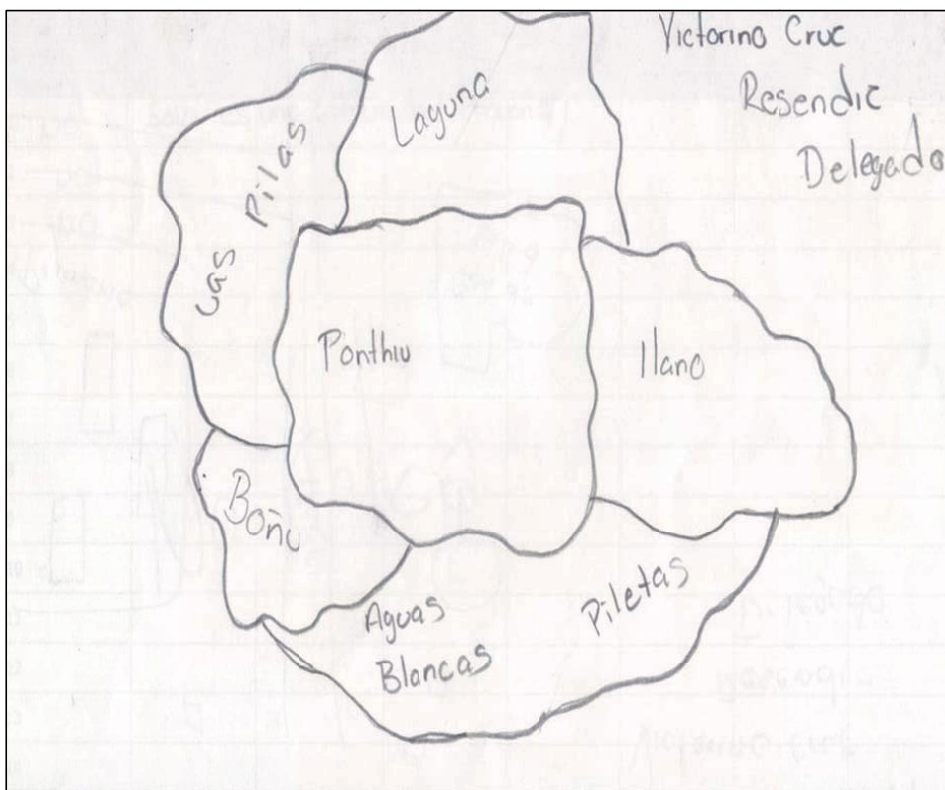 Victorino Cruc
Resendic
Delegado
Laguna
Las Pilas
Ponthiu
llano
Boñu
Aguas
Blancas
Piletas